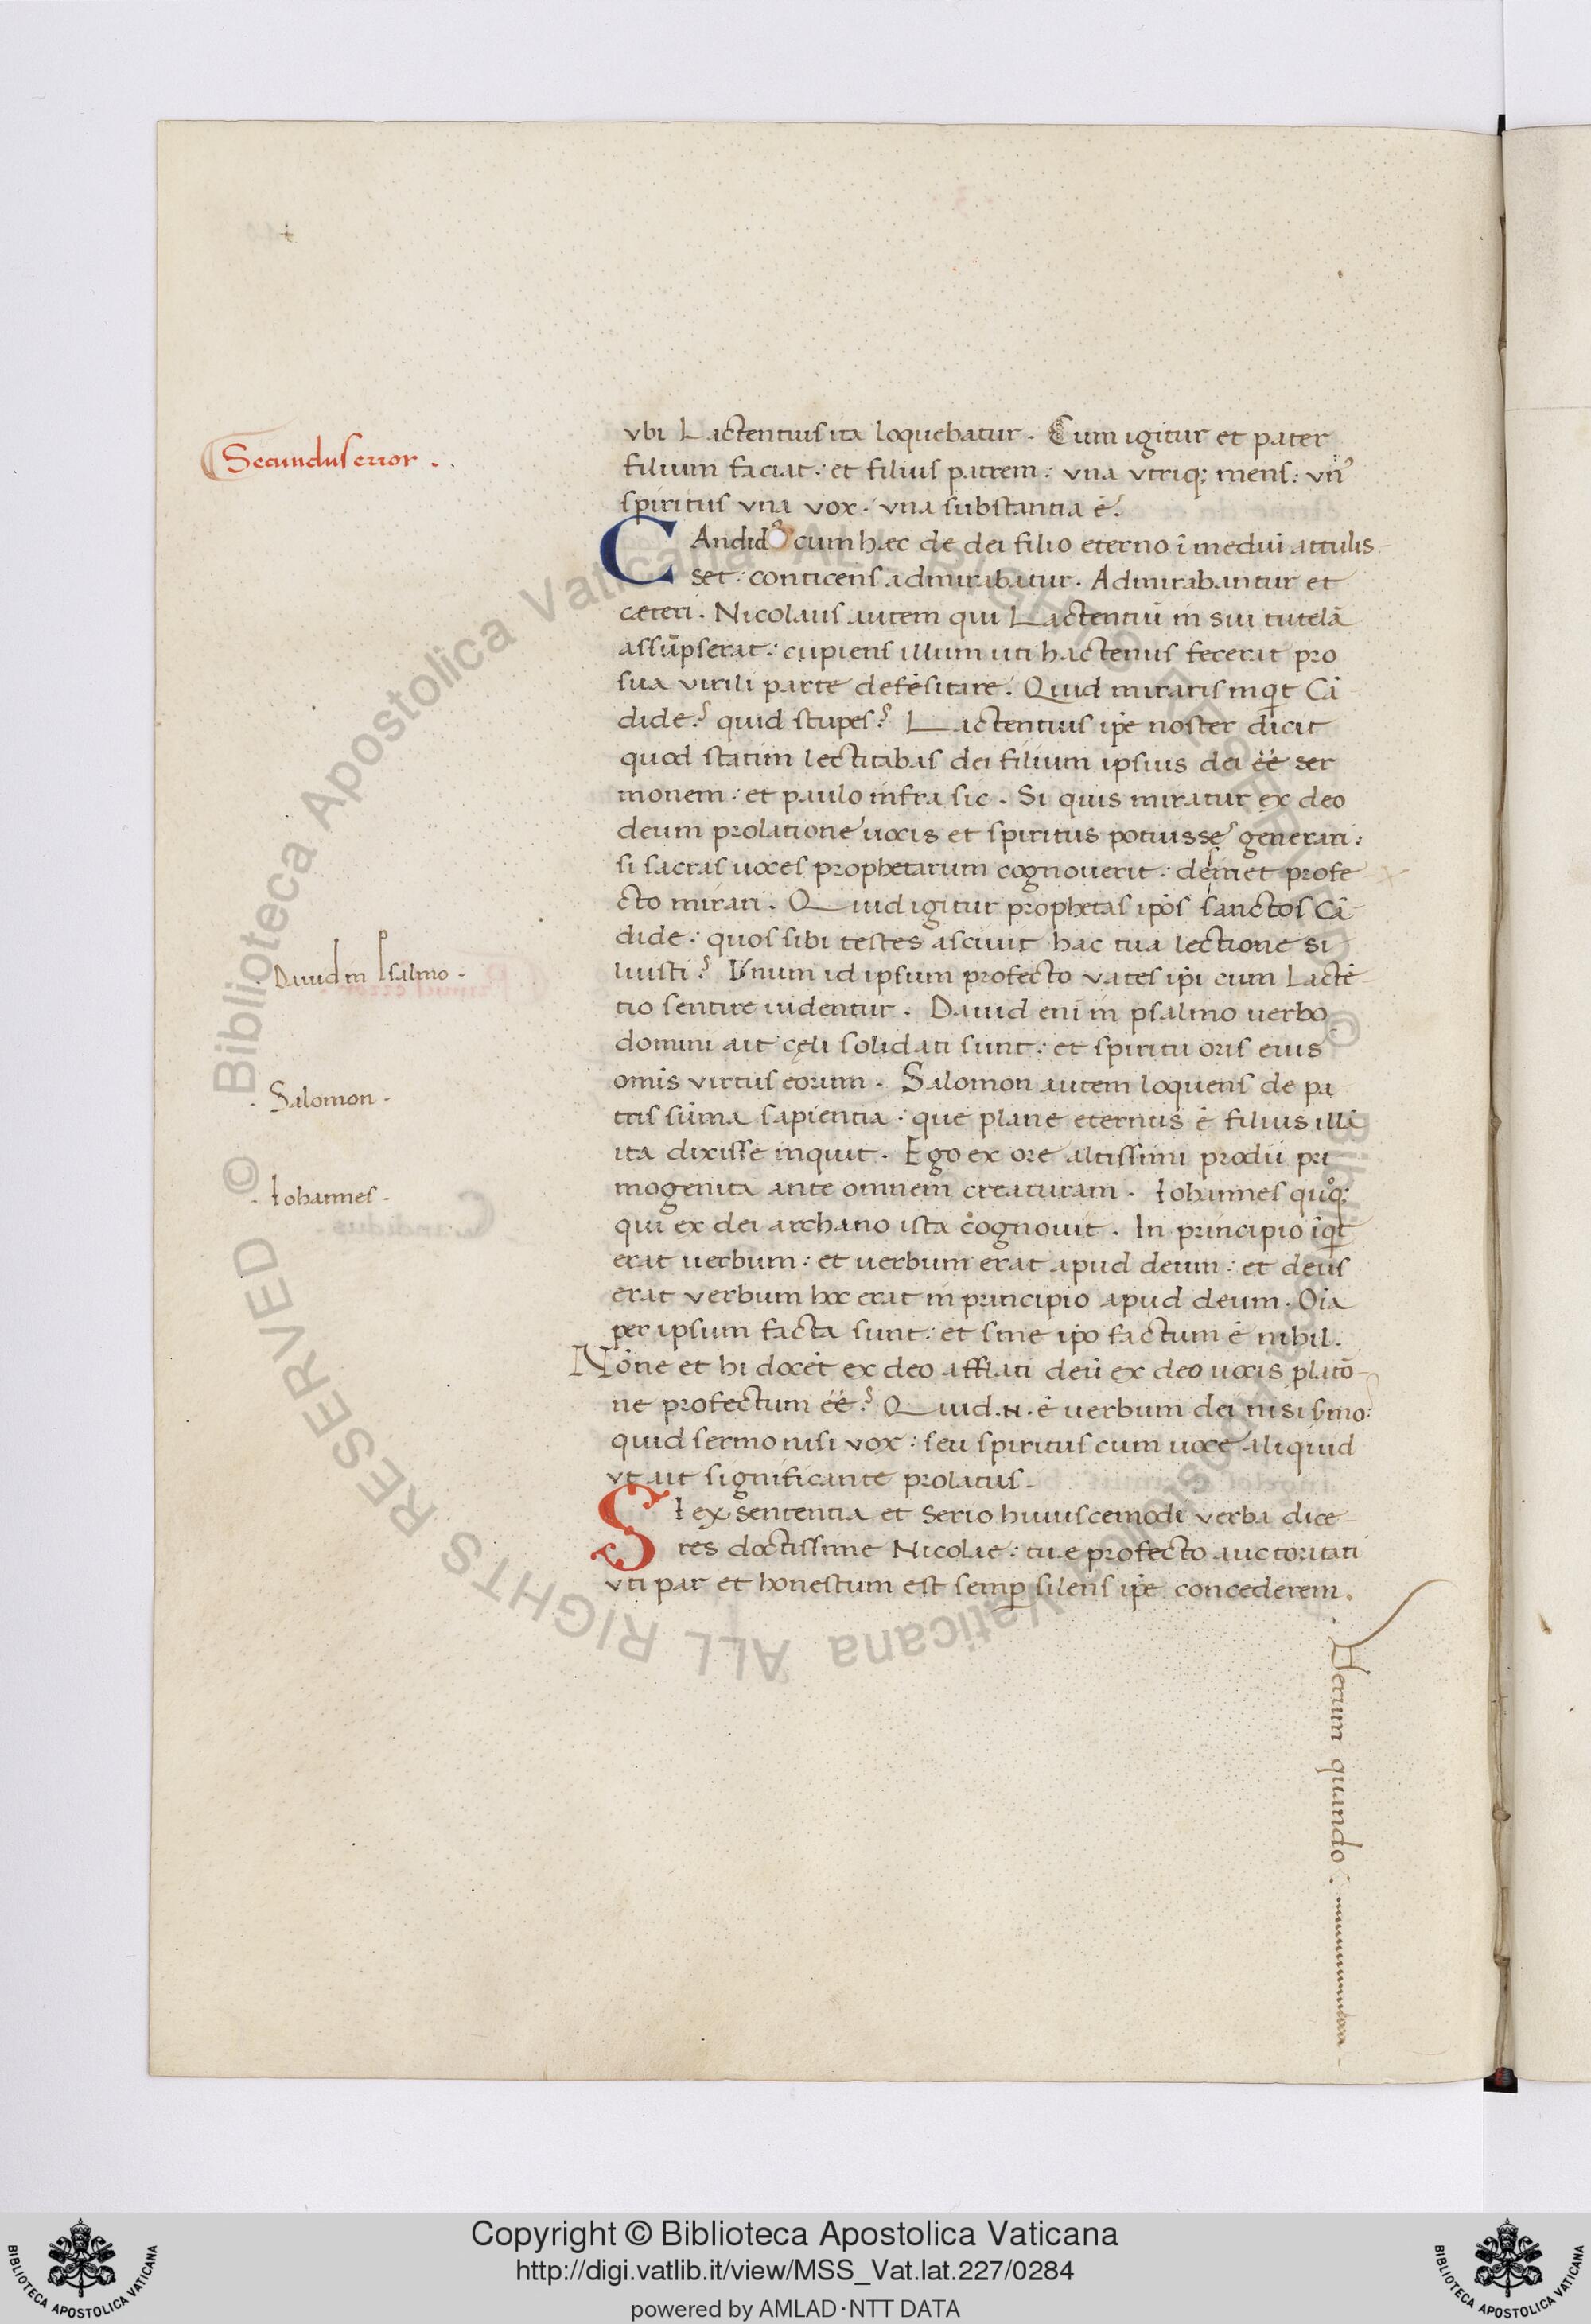 Secundus error.
vbi Lactentius ita loquebatur. Cum igitur et pater
filium faciat: et filius patrem: vna vtriq; mens: vn̄ꝰ
spiritus vna vox: vna substantia ē.
CAndidꝰ cum hæc de dei filio eterno ī mediū attulis
set: conticens admirabatur. Admirabantur et
cæteri. Nicolaus autem qui Lactentiū in sui tutelā
assūpserat: cupiens illum uti hactenus fecerat pro
sua virili parte defēsitare. Quid miraris inqt Cā
dide? quid stupes? Lactentius ip̄e noster dicit
quod statim lectitabas dei filium ipsius dei ēē ser
monem: et paulo infra sic. Si quis miratur ex deo
deum prolatione uocis et spiritus potuisse generari:
si sacras uoces prophetarum cognouerit: desinet profe
cto mirari. Quid igitur prophetas ip̄os sanctos Cā
dide: quos sibi testes asciuit hac tua lectione si
luisti? Vnum id ipsum profecto vates ip̄i cum Lactē
tio sentire uidentur. Dauid eni in psalmo uerbo
Dauid in Psalmo
domini ait cęli solidati sunt: et spiritu oris eius
omīs virtus eorum. Salomon autem loquens de pa
Salomon
tris sūma sapientia: que plane eternus ē filius illā
ita dixisse inquit. Ego ex ore altissimi prodii pri
mogenita ante omnem creaturam. Iohannes quoq;
Iohannes
qui ex dei archano ista cognouit. In principio īqt
erat uerbum: et uerbum erat apud deum: et deus
erat verbum hoc erat in principio apud deum. Oīa
per ipsum facta sunt: et sine ip̄o factum ē nihil.
Nōne et hi docēt ex deo afflati deū ex deo uocis platō
ne profectum ēē? Quid .N. ē uerbum dei nisi s̄mo:
quid sermo nisi vox: seu spiritus cum uoce aliquid
vt ait significante prolatus.
SI ex sententia et serio huiuscemodi verba dice
res doctissime Nicolae: tuæ profecto auctoritati
vti par et honestum est semp silens ip̄e concederem.
Verum quando:
Copyright © Biblioteca Apostolica Vaticana
http://digi.vatlib.it/view/MSS_Vat.lat.227/0284
powered by AMLAD·NTT DATA
BIBLIOTECA APOSTOLICA VATICANA
BIBLIOTECA APOSTOLICA VATICANA
© Biblioteca Apostolica Vaticana ALL RIGHTS RESERVED
© Biblioteca Apostolica Vaticana ALL RIGHTS RESERVED